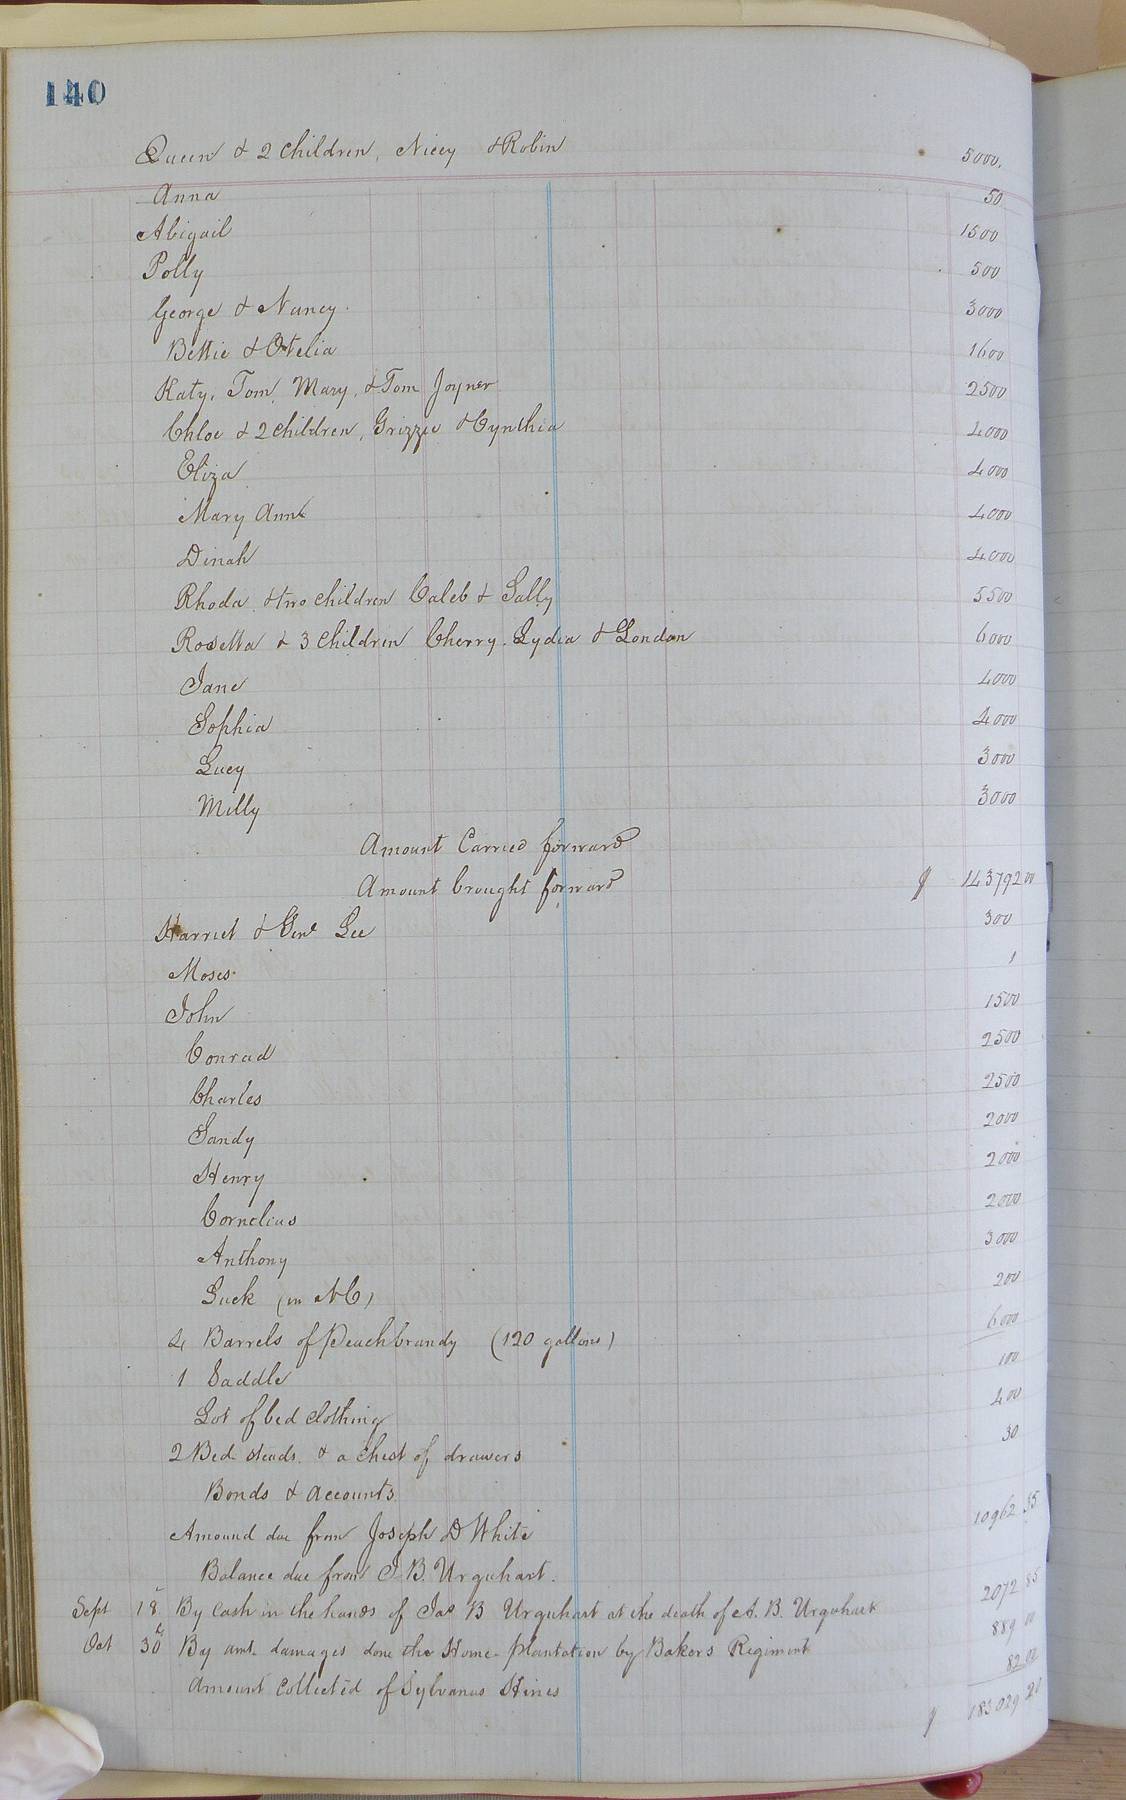 140
Queen & 2 Children, Nicey & Robin 5000.
Anna 50
Abigail 1500
Polly 500
George & Nancy 3000
Bettie & Otelia 1600
Katy, Tom, Mary, & Tom Joyner 2500
Chloe & 2 Children, Grizzie & Cynthia 4000
Eliza 4000
Mary Ann 4000
Dinah 4000
Rhoda & two children Caleb & Sally 5500
Rosetta & 3 Children Cherry. Lydia & London 6000
Jane 4000
Sophia 4000
Lucy 3000
Milly 3000
Amount Carried forward
Amount brought forward $ 143792 00
Harriet & Genl Lee 300
Moses 1
John 1500
Conrad 2500
Charles 2500
Sandy 2000
Henry 2000
Cornelius 2000
Anthony 3000
Luck (in NC) 200
4 Barrels of Peach brandy (120 gallons) 6000
1 Saddle 100
Lot of bed clothing 400
2 Bed steads & a chest of drawers 30
Bonds & accounts
Amound due from Joseph D White 10962 35
Balance due from J. B. Urquhart.
Sept 18 By Cash in the hands of Jas B Urquhart at the death of A. B. Urquhart 2072 85
Oct 30 By amt. damages done the Home-plantation by Bakers Regiment 889 00
Amount Collected of Sylvanus Hines 82 00
$ 183029 20